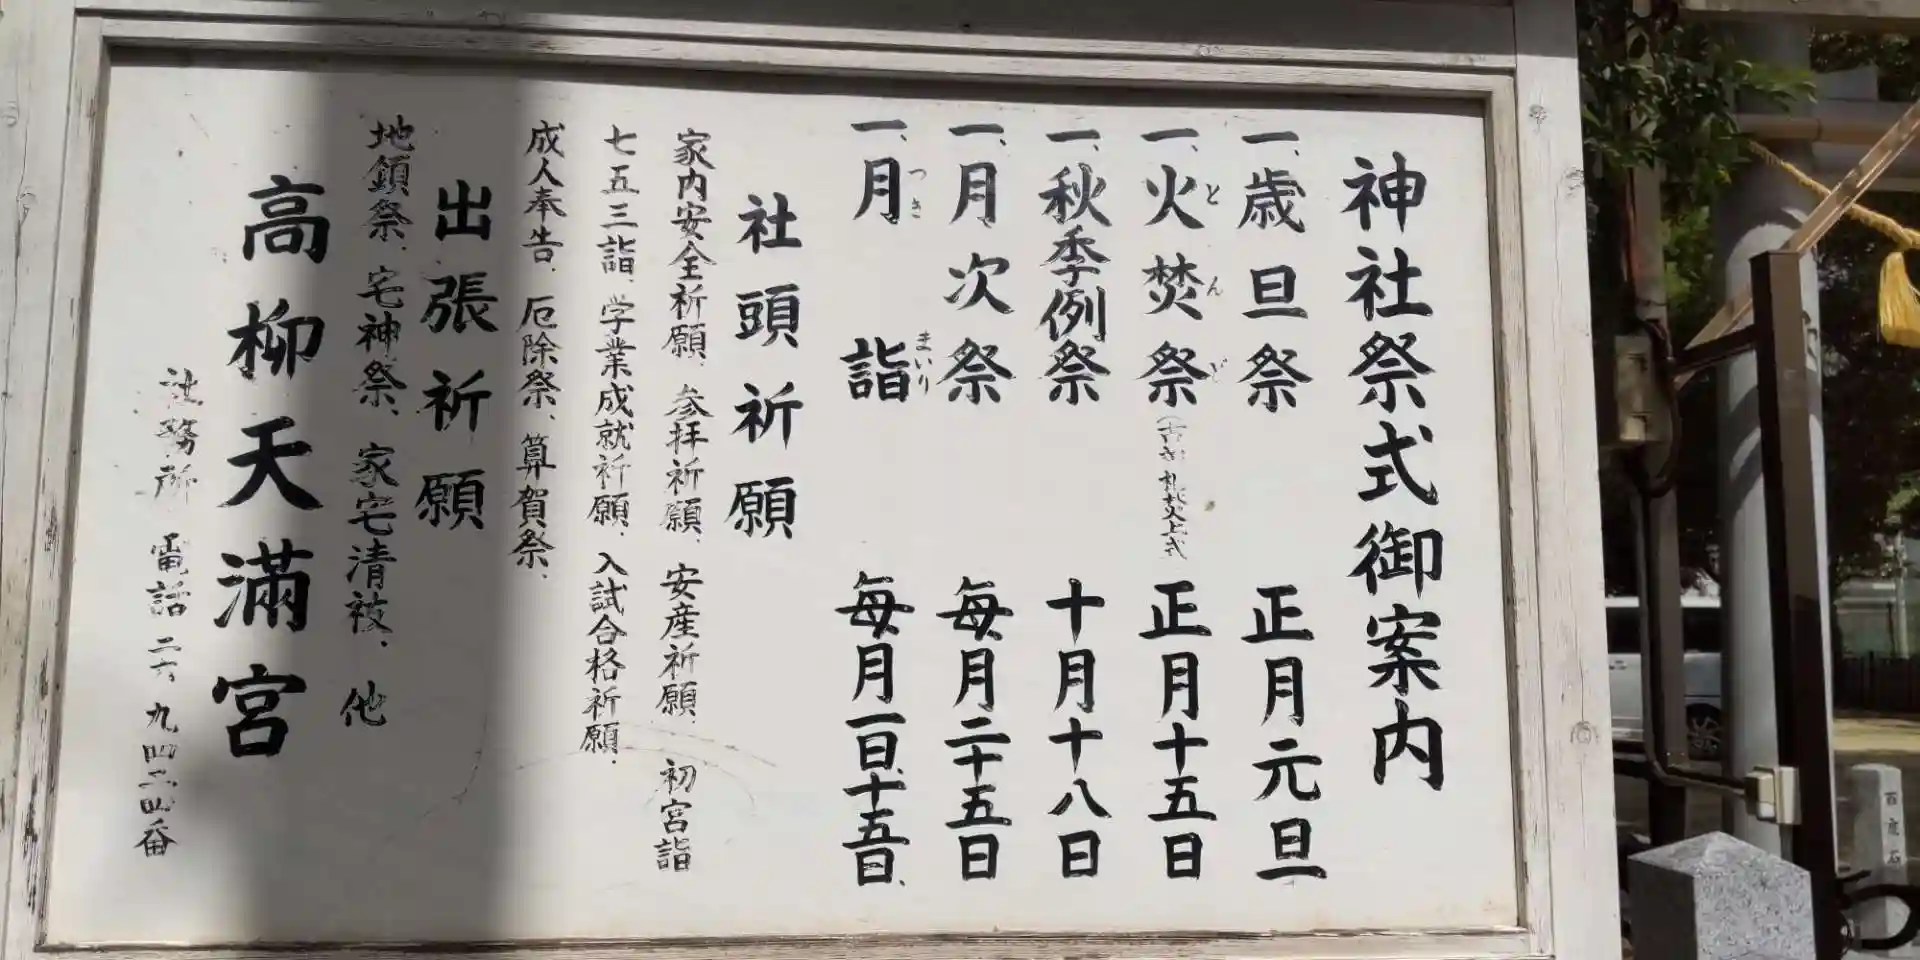 神社祭式御案内
一、歳旦祭 正月元旦
一、火焚祭 正月十五日
とんど
一、秋季例祭 十月十八日
一、月次祭 毎月二十五日
一、月詣 毎月一日、十五日、
つきまいり
社頭祈願
家内安全祈願、参拝祈願、安産祈願、初宮詣
七五三詣、学業成就祈願、入試合格祈願、
成人奉告、厄除祭、算賀祭、
出張祈願
地鎮祭、宅神祭、家宅清祓、他
高柳天満宮
社務所 電話 二六 九四二四番
百度石